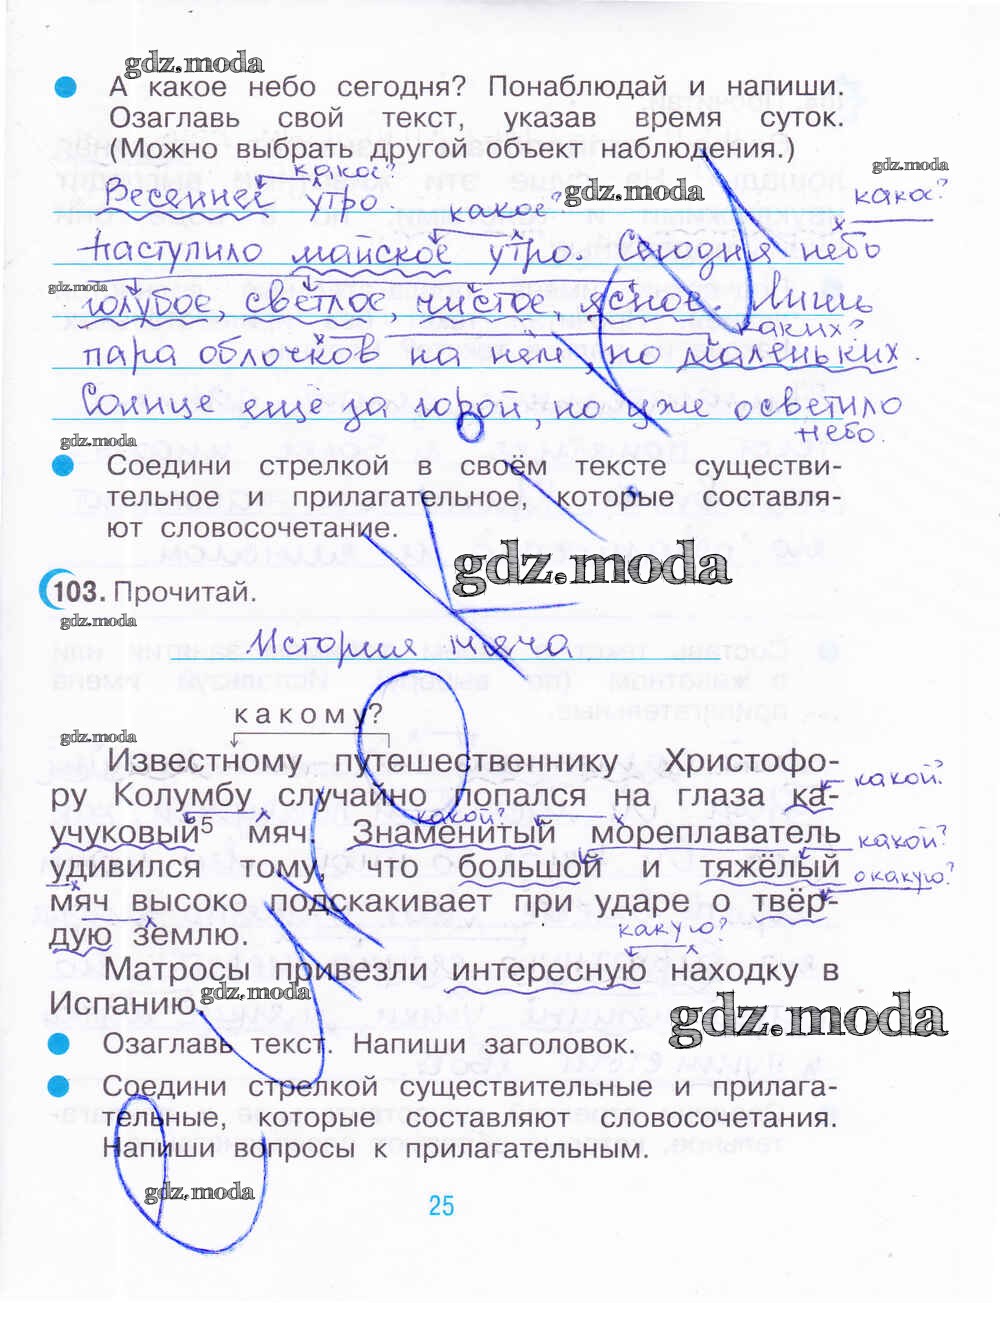 gdz.moda
А какое небо сегодня? Понаблюдай и напиши.
Озаглавь свой текст, указав время суток.
(Можно выбрать другой объект наблюдения.)
какое?
gdz.moda
gdz.moda
Весеннее утро.
какое?
какое?
Наступило майское утро. Сегодня небо
gdz.moda
голубое, светлое, чистое, ясное. Лишь
каких?
пара облачков на нем, но маленьких.
Солнце ещё за горой, но уже осветило
небо.
gdz.moda
Соедини стрелкой в своём тексте существи-
тельное и прилагательное, которые составля-
ют словосочетание.
gdz.moda
103. Прочитай.
gdz.moda
История мяча
какому?
gdz.moda
Известному путешественнику Христофо-
какой?
ру Колумбу случайно попался на глаза ка-
какой?
учуковый⁵ мяч. Знаменитый мореплаватель
какой?
удивился тому, что большой и тяжёлый
о какую?
мяч высоко подскакивает при ударе о твёр-
дую землю.
какую?
Матросы привезли интересную находку в
Испанию.
gdz.moda
gdz.moda
Озаглавь текст. Напиши заголовок.
Соедини стрелкой существительные и прилага-
тельные, которые составляют словосочетания.
Напиши вопросы к прилагательным.
gdz.moda
25